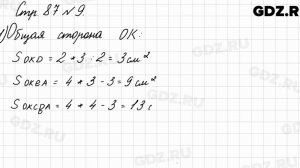 Стр. 87 № 9.
GDZ.R
1) Общая сторона OK:
S OKD = 2 * 3 : 2 = 3 см²
S OKEA = 4 * 3 - 3 = 9 см²
S OKCBA = 4 * 4 - 3 = 13 с